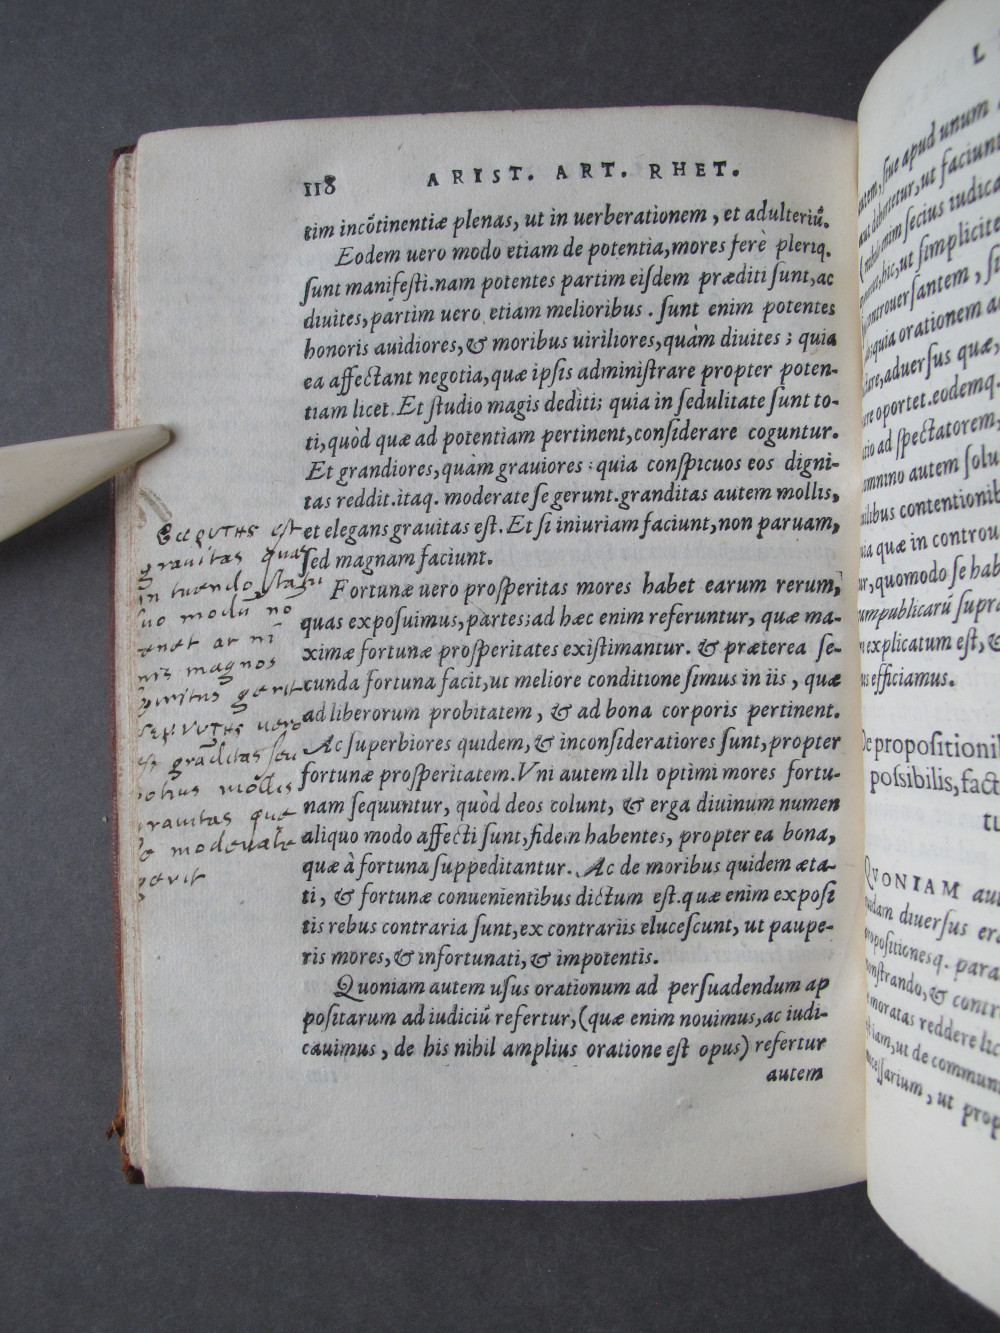 118 ARIST. ART. RHET.
tim incōtinentiæ plenas, ut in uerberationem, et adulteriū.
Eodem uero modo etiam de potentia, mores ferè pleriq.
sunt manifesti. nam potentes partim eisdem præditi sunt, ac
diuites, partim uero etiam melioribus. sunt enim potentes
honoris auidiores, & moribus uiriliores, quàm diuites; quia
ea affectant negotia, quæ ipsis administrare propter poten-
tiam licet. Et studio magis dediti; quia in sedulitate sunt to-
ti, quòd quæ ad potentiam pertinent, considerare coguntur.
Et grandiores, quàm grauiores: quia conspicuos eos digni-
tas reddit. itaq. moderate se gerunt. granditas autem mollis,
et elegans grauitas est. Et si iniuriam faciunt, non paruam,
sed magnam faciunt.
Fortunæ uero prosperitas mores habet earum rerum,
quas exposuimus, partes; ad hæc enim referuntur, quæ ma-
ximæ fortunæ prosperitates existimantur. & præterea se-
cunda fortuna facit, ut meliore conditione simus in iis, quæ
ad liberorum probitatem, & ad bona corporis pertinent.
Ac superbiores quidem, & inconsideratiores sunt, propter
fortunæ prosperitatem. Vni autem illi optimi mores fortu-
nam sequuntur, quòd deos colunt, & erga diuinum numen
aliquo modo affecti sunt, fidem habentes, propter ea bona,
quæ à fortuna suppeditantur. Ac de moribus quidem æta-
ti, & fortunæ conuenientibus dictum est. quæ enim exposi
tis rebus contraria sunt, ex contrariis elucescunt, ut paupe-
ris mores, & infortunati, & impotentis.
Quoniam autem usus orationum ad persuadendum ap
positarum ad iudiciū refertur, (quæ enim nouimus, ac iudi-
cauimus, de his nihil amplius oratione est opus) refertur
autem
est
grauitas quæ
in tuendo statu
suo modū no
magnos
gerit
uero
est grāditas seu
potius mollis
grauitas quæ
se moderate
gerit
L
apud unum
ut faciunt
enim secius iudica
hic, ut simplicite
controuersantem, si
quia orationem a
aduersus quæ,
oportet. eodemq.
ad spectatorem,
omnino autem solu
contentionib
quæ in controu
quomodo se hab
publicarū supra
explicatum est, &
efficiamus.
De propositionib
possibilis, fact
tu
QVONIAM au
diuersus era
propositionesq. para
& contr
moratas reddere lic
ut de communi
ut prop